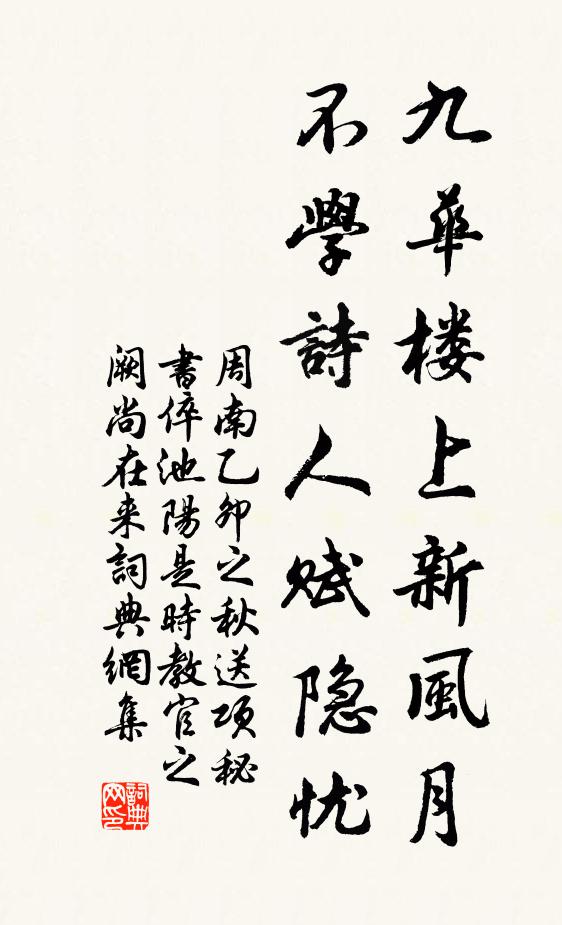 九華楼上新風月
不學詩人賦隐忧
周南乙卯之秋送项秘
書倅池陽是時教官之
阙尚在来詞典網集
詞典
网印